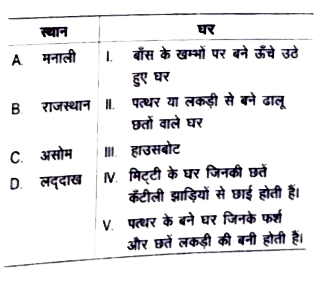 स्थान घर
A. मनाली I. बाँस के खम्भों पर बने ऊँचे उठे
हुए घर
B. राजस्थान II. पत्थर या लकड़ी से बने ढालू
छतों वाले घर
C. असोम III. हाउसबोट
D. लद्दाख IV. मिट्टी के घर जिनकी छतें
कँटीली झाड़ियों से छाई होती हैं।
V. पत्थर के बने घर जिनके फर्श
और छतें लकड़ी की बनी होती हैं।